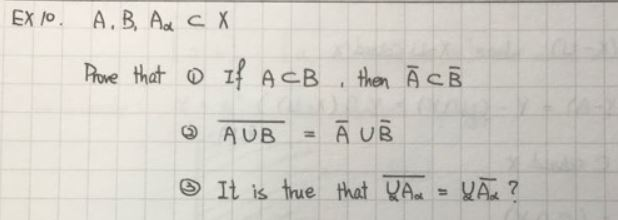 EX 10. A, B, Aα ⊂ X
Prove that ① If A⊂B, then Ā ⊂ B̄
② \overline{A∪B} = Ā ∪ B̄
③ It is true that \overline{∪_α A_α} = ∪_α \overline{A_α} ?